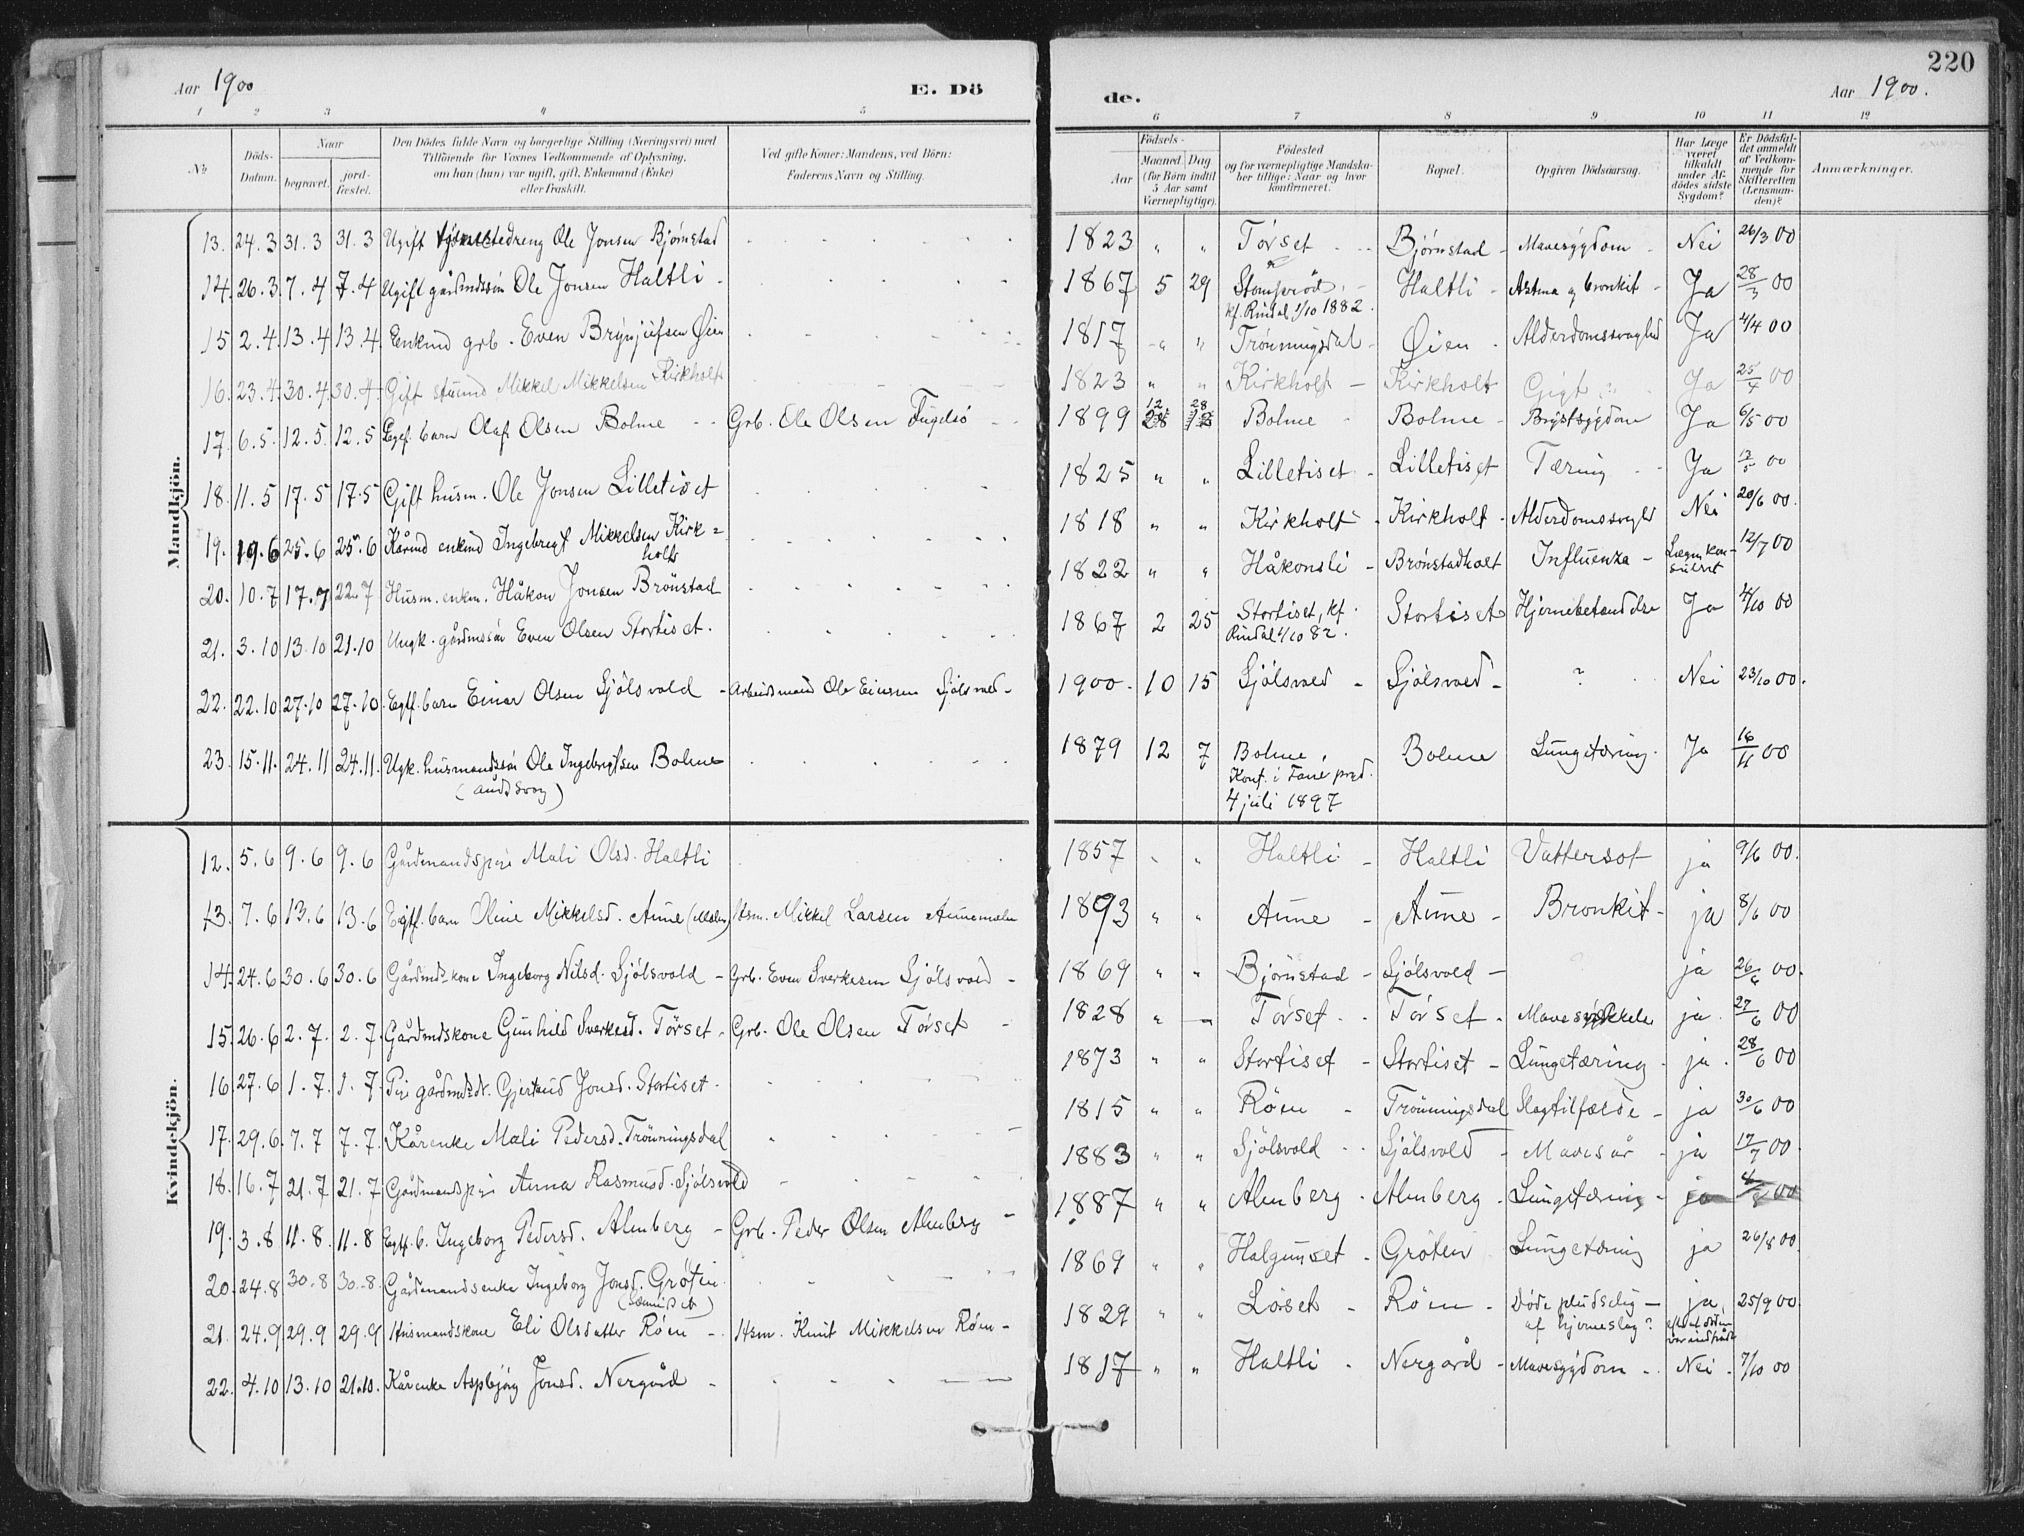 220
Aar 1900
E. Dö
de.
Aar 1900.
1 2 3 4 5
6 7 8 9 10 11 12
No
Döds-
Datum.
Naar
begravet.
jord-
fæstet.
Den Dödes fulde Navn og borgerlige Stilling (Næringsvei) med
Tilföiende for Voxnes Vedkommende af Oplysning,
om han (hun) var ugift, gift, Enkemand (Enke)
eller fraskilt.
Ved gifte Koner: Mandens, ved Börn:
Faderens Navn og Stilling.
Födsels-
Aar
Maaned Dag
(for Börn indtil
5 Aar samt
Værnepligtige).
Födested
og for værnepligtige Mandska-
ber tillige: Naar og hvor
konfirmeret.
Bopæl.
Opgiven Dödsaarsag.
Har Læge
været
tilkaldt
under Af-
dödes sidste
Sygdom?
Er Dödsfal-
det anmeldt
af Vedkom-
mende for
Skifteretten
(Lensman-
den)?
Anmærkninger.
Mandkjön.
13. 24.3 31.3 31.3 Ugift Ole Jonsen Bjørnstad 1823 " " Tørset Bjørnstad Mavesygdom Nei 26/3 00
14. 26.3 7.4 7.4 Ugift gårdmdssøn Ole Jonsen Haltli 1867 5 29 Haltli Astma og bronkit Ja 28/3 00
kf. Rindal 1/10 1882.
15 2.4 13.4 13.4 Enkmd grb. Even Brynjulfsen Øien 1817 " " Trønningsdal Øien Alderdomssvaghed Ja 4/4 00
16. 23.4 30.4 30.4 Gift Mikkel Mikkelsen Kirkholt 1823 " " Kirkholt Kirkholt Gigt ? Ja 25/4 00
17. 6.5 12.5 12.5 Egtf. barn Olaf Olsen Bolme Grb. Ole Olsen Fugelsø 1899 12 28 Bolme Bolme Brystsygdom Ja 6/5 00
18. 11.5 17.5 17.5 Gift husm. Ole Jonsen Lilletiset 1825 " " Lilletiset Lilletiset Tæring Ja 12/5 00
19. 19.6 25.6 25.6 Kårmd enkmd Ingebrigt Mikkelsen Kirk-
holt 1818 " " Kirkholt Kirkholt Alderdomssvaghd Nei 20/6 00.
20. 10.7 17.7 22.7 Husm. enkm. Håkon Jonsen Brønstad 1822 " " Håkonsli Brønstadholt Influenza Lægen kon-
sulret 12/7 00
21. 3.10 13.10 21.10 Ungk. gårdmssøn Even Olsen Stortiset. 1867 2 25 Stortiset, kf.
Rindal 1/10 82. Stortiset Hjernebetændelse Ja 4/10 00
22. 22.10 27.10 27.10 Egtf. barn Einar Olsen Sjølsvold Arbeidsmand Ole Sjølsvold 1900. 10 15 Sjølsvold Sjølsvold ? Nei 23/10 00.
23. 15.11. 24.11 24.11. Ugk. husmandssøn Ole Ingebrigtsen Bolme
(åndssvag) 1879 12 7 Bolme,
Konf. i Fane præd.
4 juli 1897 Bolme Lungetæring. Ja 16/11 00
Kvindekjön.
12. 5.6 9.6 9.6 Gårdmandspige Mali Olsd. Haltli 1857 " " Haltli Haltli Vattersot ja 9/6 00.
13. 7.6 13.6 13.6 Egtf. barn Oline Mikkelsd. Aune (Moln) Hsm. Mikkel Larsen Aunemoln 1893 " " Aune Aune Bronkit ja 8/6 00
14. 24.6 30.6 30.6 Gårdmdskone Ingeborg Nilsd. Sjølsvold Grb. Even Sverkesen Sjølsvold 1869 " " Bjørnstad Sjølsvold ja 26/6 00.
15. 26.6 2.7. 2.7 Gårdmdskone Gunhild Sverkesd. Tørset Grb. Ole Olsen Tørset 1828 " " Tørset Tørset ja 27/6 00
16. 27.6 1.7. 1.7 Pige gårdmdsdt. Gjertrud Jonsd. Stortiset. 1873 " " Stortiset Stortiset Lungetæring ja. 28/6 00
17. 29.6. 7.7 7.7. Kårenke Mali Pedersd. Trønningsdal 1815 " " Røen Trønningsdal Slagtilfælde ja 30/6 00
18. 16.7 21.7 21.7 Gårdmandspige Anna Rasmusd. Sjølsvold 1883 " " Sjølsvold Sjølsvold Mavesår ja 17/7 00
19. 3.8 11.8. 11.8 Egtf. b. Ingeborg Pedersd. Almberg Grb. Peder Olsen Almberg 1887 " " Almberg Almberg Lungetæring ja 4/8 00
20. 24.8 30.8 30.8. Gårdmandsenke Ingeborg Jonsd. Grøten 1869 " " Halgunset Grøten Lungetæring ja 26/8 00.
21. 24.9 29.9 29.9 Husmandskone Eli Olsdatter Røen Hsm. Knut Mikkelsen Røen 1829 " " Løset Røen Døde pludselig
af hjerneslag? ja,
efterat døden
var indtrådt 25/9 00
22. 4.10 13.10 21.10. Kårenke Aspbjørg Jonsd. Nergård 1817 " " Haltli Nergård Mavesygdom Nei 7/10 00